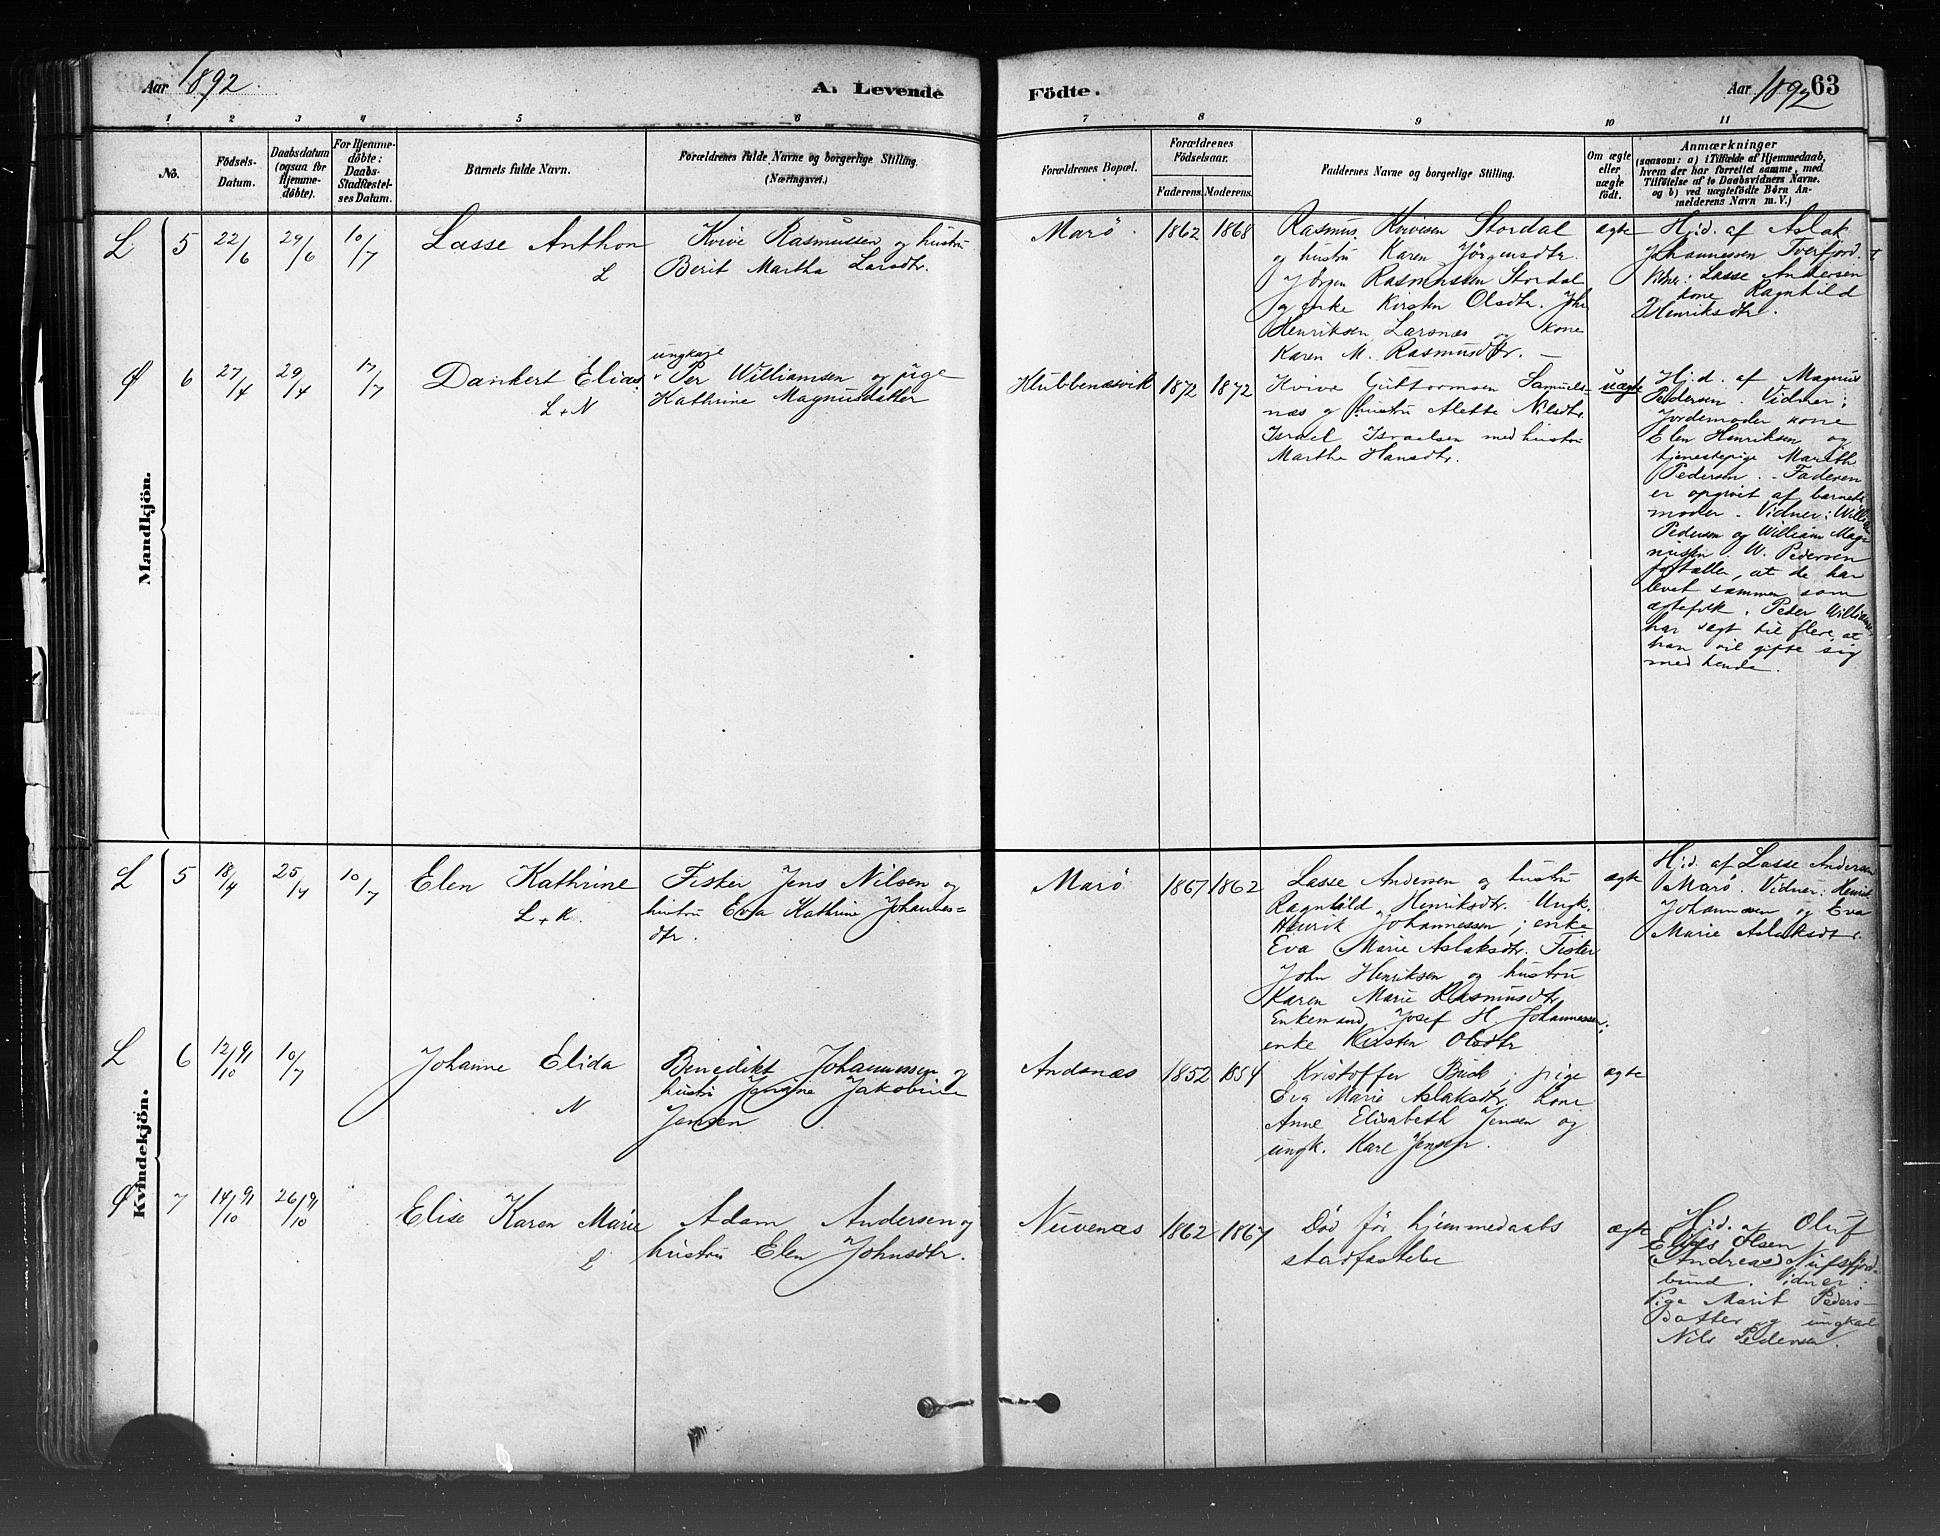 Aar 1892.
A. Levende
Födte.
Aar 1892 63
1 2 3 4 5 6 7 8 9 10 11
No.
Födsels-
Datum.
Daabsdatum
(ogsaa for
Hjemme-
döbte).
For Hjemme-
döbte:
Daabs-
Stadfæstel-
ses Datum.
Barnets fulde Navn.
Forældrenes fulde Navne og borgerlige Stilling.
(Næringsvei.)
Forældrenes Bopæl.
Forældrenes
Födselsaar.
Faderens. Moderens.
Faddernes Navne og borgerlige Stilling.
Om ægte
eller
uægte
födt.
Anmærkninger
(saasom: a) i Tilfælde af Hjemmedaab,
hvem der har forrettet samme, med
Tilföielse af to Daabsvidners Navne.
og b) ved uægtefödte Börn An-
melderens Navn m. V.)
Mandkjön.
L 5 22/6 29/6 10/7
Lasse Anthon
L
Kvive Rasmussen og hustru
Berit Martha Larsdtr.
Marö. 1862 1868
Rasmus Kvivesen Stordal
og hustru Karen Jörgensdtr.
Jörgen Rasmussen Stordal
og enke Kirsten Olsdtr. John
Henriksen Larsnæs og kone
Karen M. Rasmusdtr. —
ægte
Hjd. af Aslak
Johannessen Tverfjord.
Vidner: Lasse Andersen
og kone Ragnhild
Henriksdtr.
Ø 6 27/4 29/4 17/7
Dankert Elias
L+N
ungkarl
Per Williamsen og pige
Kathrine Magnusdatter
Klubbenæsvik 1872 1872
Kvive Guttormsen Samuels-
næs og hustru Alette Nilsdtr.
Israel Israelsen med hustru
Marthe Hansdtr.
uægte
Hjd. af Magnus
Pedersen. Vidner:
Jordemoder kone
Elen Henriksen og
tjenestepige Mareth
Pedersen. - Faderen
er opgivet af barnets
moder. Vidner: William
Pedersen og William Mag-
nussen. W. Pedersen
fortæller, at de har
levet sammen som
ægtefolk. Peder Williamsen
har sagt til flere, at
han vil gifte sig
med hende.
Kvindekjön.
L 5 18/4 25/4 10/7
Elen Kathrine
L+K.
Fisker Jens Nilsen og
hustru Eva Kathrine Johannes=
dtr.
Marö 1867 1862
Lasse Andersen og hustru
Ragnhild Henriksdtr. Ungk.
Henrik Johannessen; enke
Eva Marie Aslaksdtr. Fisker
John Henriksen og hustru
Karen Marie Rasmusdtr.
Enkemand Josef H. Johannessen;
enke Kirsten Olsdtr
ægte
Hjd. af Lasse Andersen
Marö. Vidner: Henrik
Johannssen og Eva
Marie Aslaksdtr.
L 6 12/10 91 10/7
Johanne Elida
N
Benedikt Johannessen og
hustru Jensine Jakobine
Jensen
Andsnæs 1852 1854
Kristoffer ; pige
Eva Marie Aslaksdtr. Kone
Anne Elisabeth Jensen og
ungk. Karl Jensen.
ægte
Ø 7 14/10 91 26/10 91
Elise Karen Marie
L
Adam Andersen og
hustru Elen Johnsdtr.
Nuvenæs 1862 1867
Död för hjemmedaabs
stadfæstelse
ægte
Hjd. af Oluf
Elias Olsen
(Andreas) Nufsfjord-
bund. Vidner:
Pige Marit Peders-
Datter og ungkarl
Nils Pedersen.